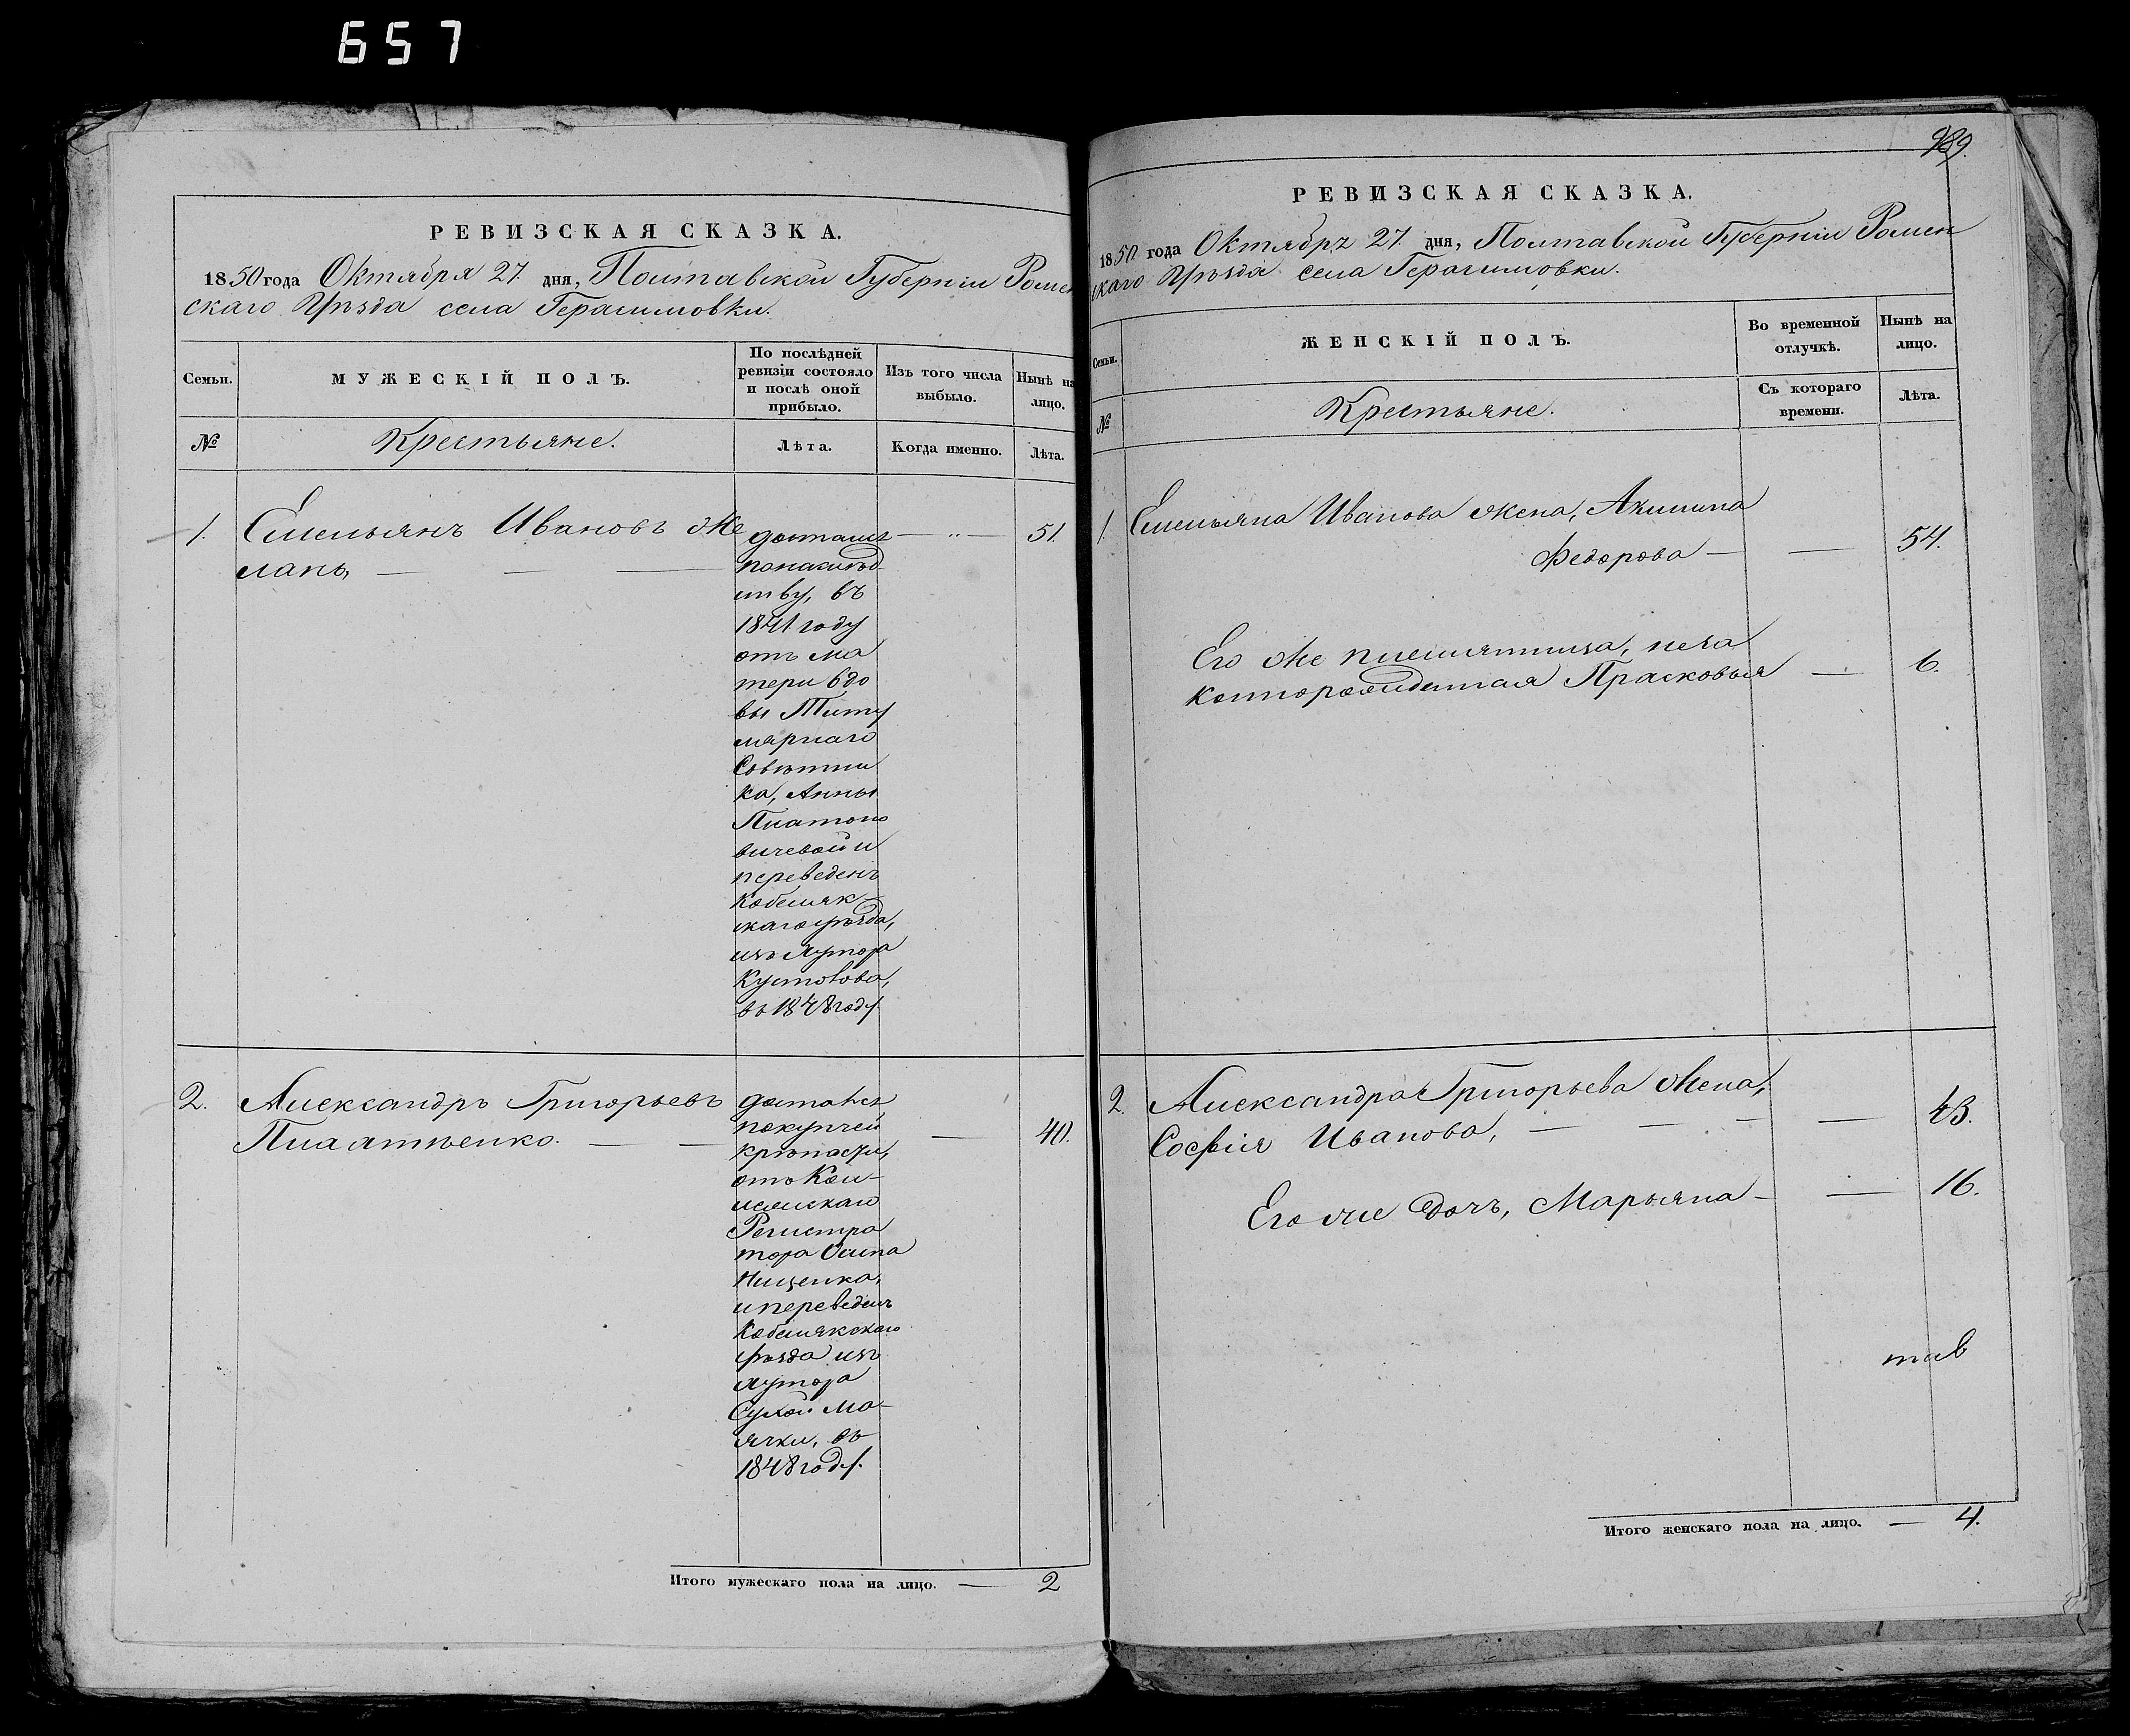 657
РЕВИЗСКАЯ СКАЗКА.
1850 года Октября 27 дня, Полтавской Губерніи Ромен
скаго Уѣзда села Герасимовки.
Семьи.
МУЖЕСКІЙ ПОЛЪ.
По послѣдней
ревизіи состояло
и послѣ оной
прибыло.
Изъ того числа
выбыло.
Нынѣ на
лицо.
№
Крестьяне.
Лѣта.
Когда именно.
Лѣта.
1. Емельянъ Ивановъ Же
лань,
51.
достался
понаслѣд
ству, въ
1841 году
отъ ма
тери вдо
вы Титу
лярнаго
Совѣтни
ка, Анны
Платоно
вичевой и
переведенъ
Кобеляк
скаго уѣзда,
изъ хутора
Кустовова,
въ 1848 году.
2. Александръ Григорьевъ
40.
достался
покупчей
крѣпости,
отъ Кол-
лежскаго
Регистра
тора Осипа
Нищенка,
и переведенъ
Кобелякскаго
уѣзда изъ
хутора
Сухой Ма-
ячки, въ
1848 году.
Итого мужескаго пола на лицо. — 2
РЕВИЗСКАЯ СКАЗКА.
1850 года Октября 27 дня, Полтавской Губерніи Ромен
скаго Уѣзда села Герасимовки.
Семьи.
ЖЕНСКІЙ ПОЛЪ.
Во временной
отлучкѣ.
Нынѣ на
лицо.
№
Крестьяне.
Съ котораго
времени.
Лѣта.
1. Емельяна Иванова жена, Акилина
Федорова — — 54.
Его же племянница, неза
коннорожденная Прасковья — 6.
2. Александра Григорьева жена,
Софія Иванова, — — — 43.
Его же дочь, Марьяна — — 16.
Итого женскаго пола на лицо. — 4.